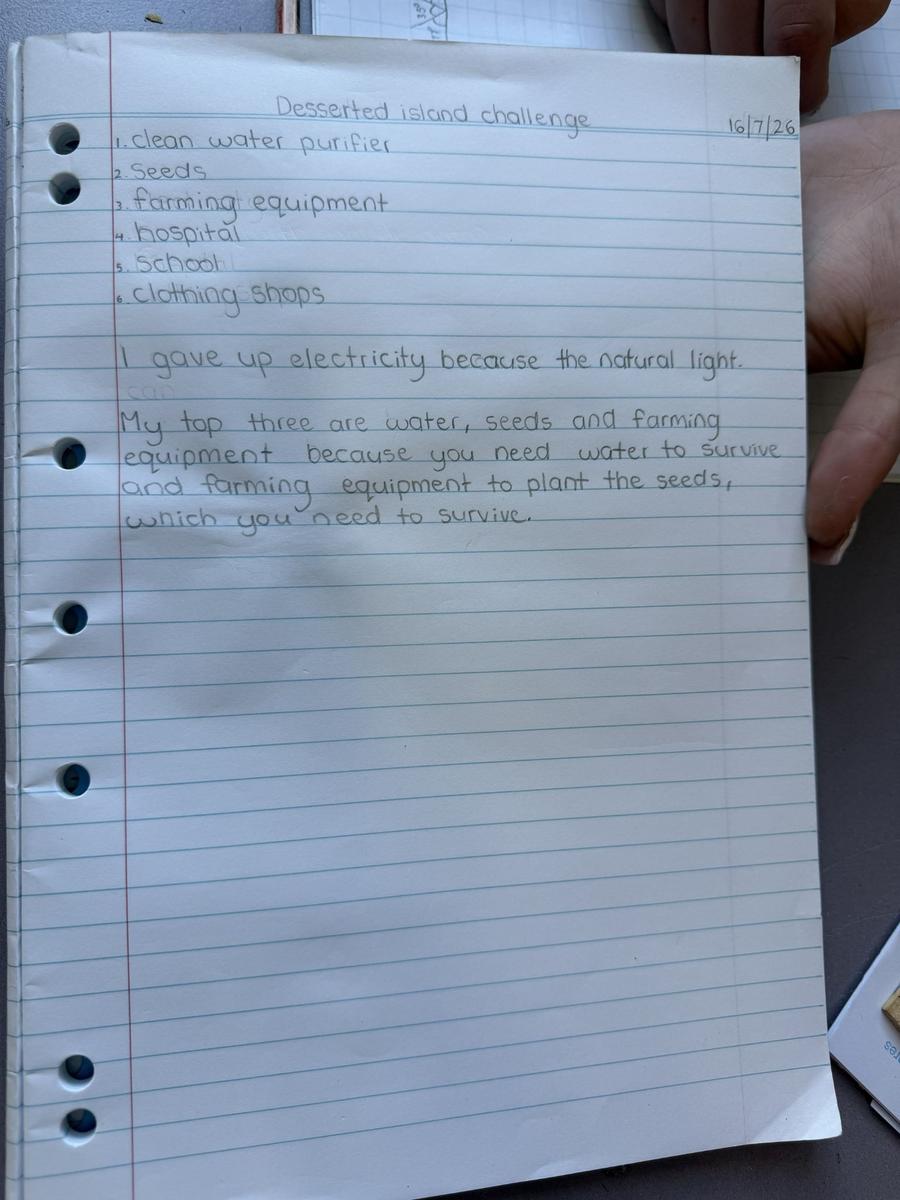 Desserted island challenge
16/7/26
1. clean water purifier
2. Seeds
3. farming equipment
4. hospital
5. School
6. clothing shops
I gave up electricity because the natural light.
can
My top three are water, seeds and farming
equipment because you need water to survive
and farming equipment to plant the seeds,
which you need to survive.